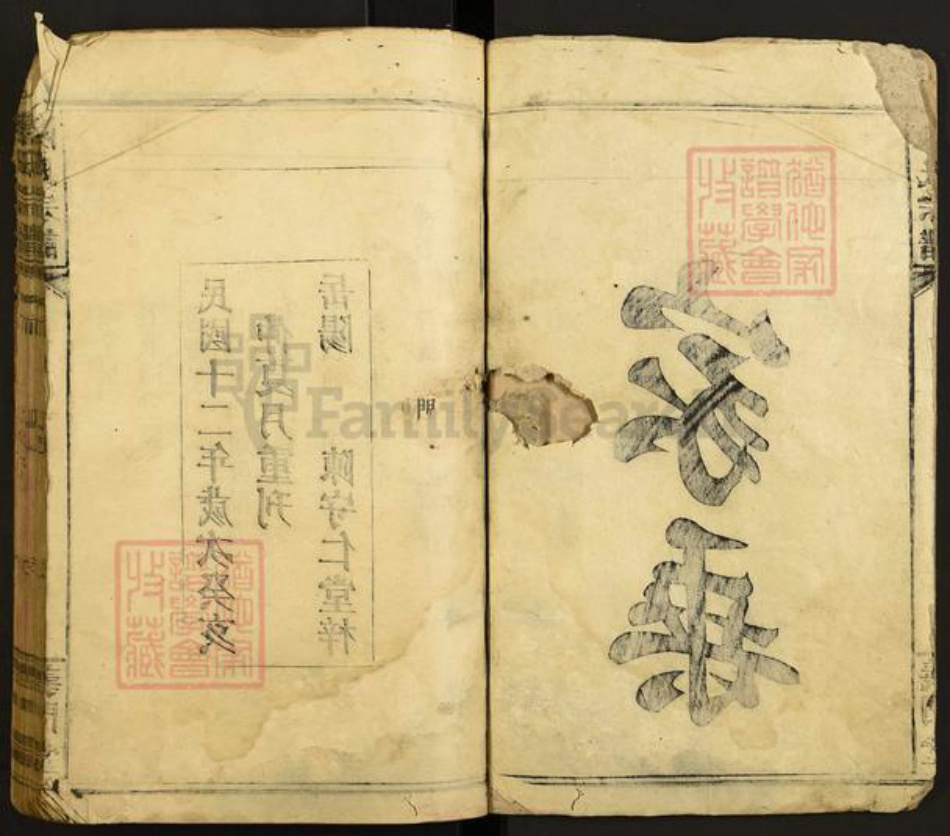 家乘
猶他家
譜學會
收藏
門
民國十二年歲次癸亥
仲夏月重刊
岳陽 陳守仁堂梓
猶他家
譜學會
收藏
FamilySearch